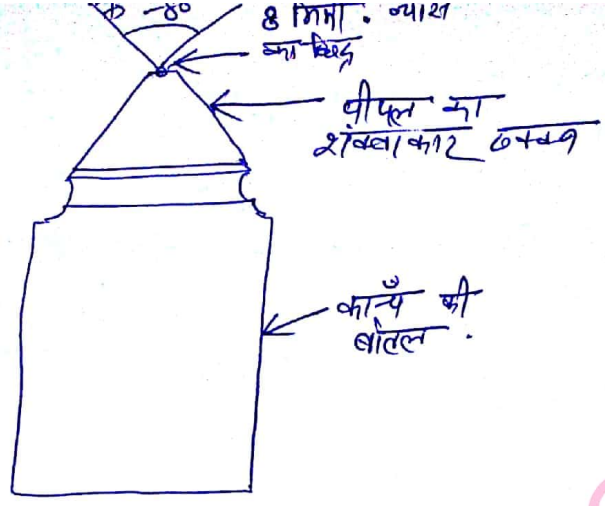 -80
8 मिमी. व्यास
का छिद्र
पीपल का
शंक्वाकार ढक्कन
काँच की
बोतल.